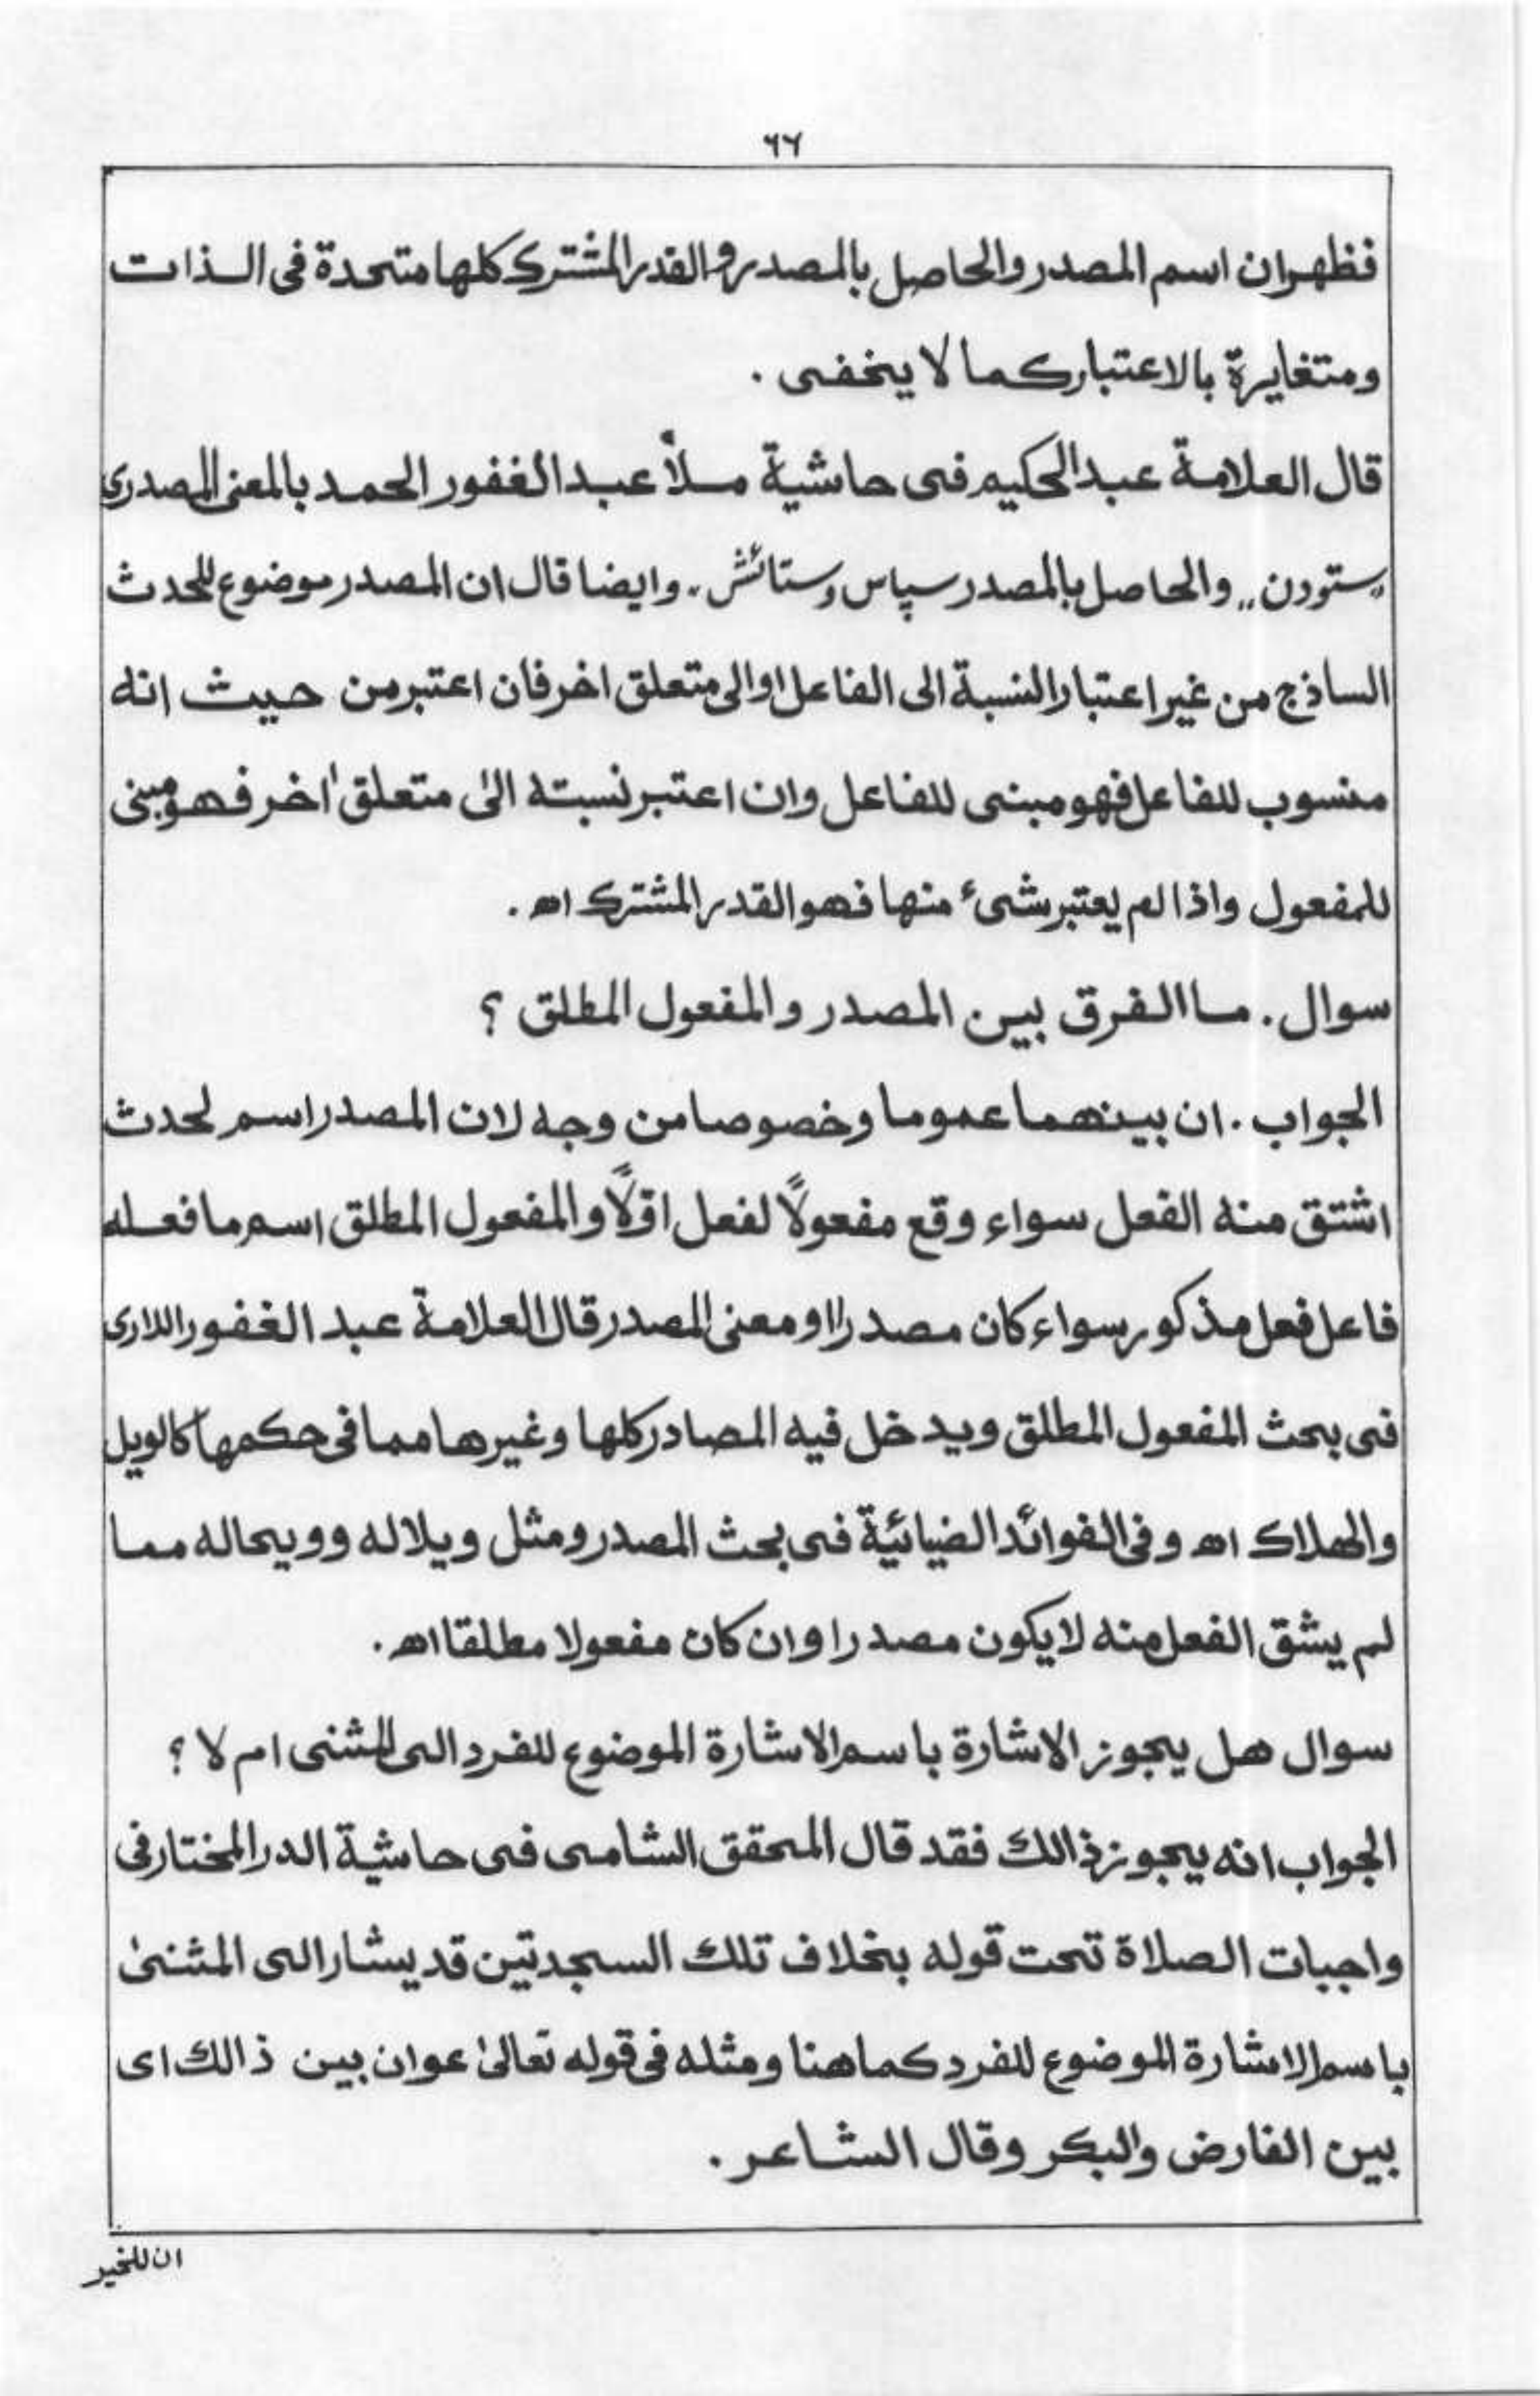 ٦٦
فظهر ان اسم المصدر والحاصل بالمصدر والقدر المشترك كلها متحدة فى الذات
ومتغايرة بالاعتبار كما لا يخفى .
قال العلامة عبد الحكيم فى حاشية ملاً عبد الغفور الحمد بالمعنى المصدرى
"ستودن" والحاصل بالمصدر سپاس وستائش، وايضا قال ان المصدر موضوع للحدث
الساذج من غير اعتبار النسبة الى الفاعل او الى متعلق اخر فان اعتبر من حيث انه
منسوب للفاعل فهو مبنى للفاعل وان اعتبر نسبته الى متعلق اٰخر فهو مبنى
للمفعول واذا لم يعتبر شىء منها فهو القدر المشترك اھ .
سوال . ما الفرق بين المصدر والمفعول المطلق ؟
الجواب . ان بينهما عموما وخصوصا من وجه لان المصدر اسم لحدث
اشتق منه الفعل سواء وقع مفعولاً لفعل اوّلاً والمفعول المطلق اسم ما فعله
فاعل فعل مذكور سواء كان مصدرا او معنى المصدر قال العلامة عبد الغفور اللارى
فى بحث المفعول المطلق ويدخل فيه المصادر كلها وغيرها مما فى حكمها كالويل
والهلاك اھ وفى الفوائد الضيائية فى بحث المصدر ومثل ويلا له وويحا له مما
لم يشق الفعل منه لا يكون مصدرا وان كان مفعولا مطلقا اھ .
سوال هل يجوز الاشارة باسم الاشارة الموضوع للفرد الى المثنى ام لا ؟
الجواب انه يجوز ذالك فقد قال المحقق الشامى فى حاشية الدر المختار فى
واجبات الصلاة تحت قوله بخلاف تلك السجدتين قد يشار الى المثنىٰ
باسم الاشارة الموضوع للفرد كما هنا ومثله فى قوله تعالىٰ عوان بين ذالك اى
بين الفارض والبكر وقال الشاعر .
ان للخير